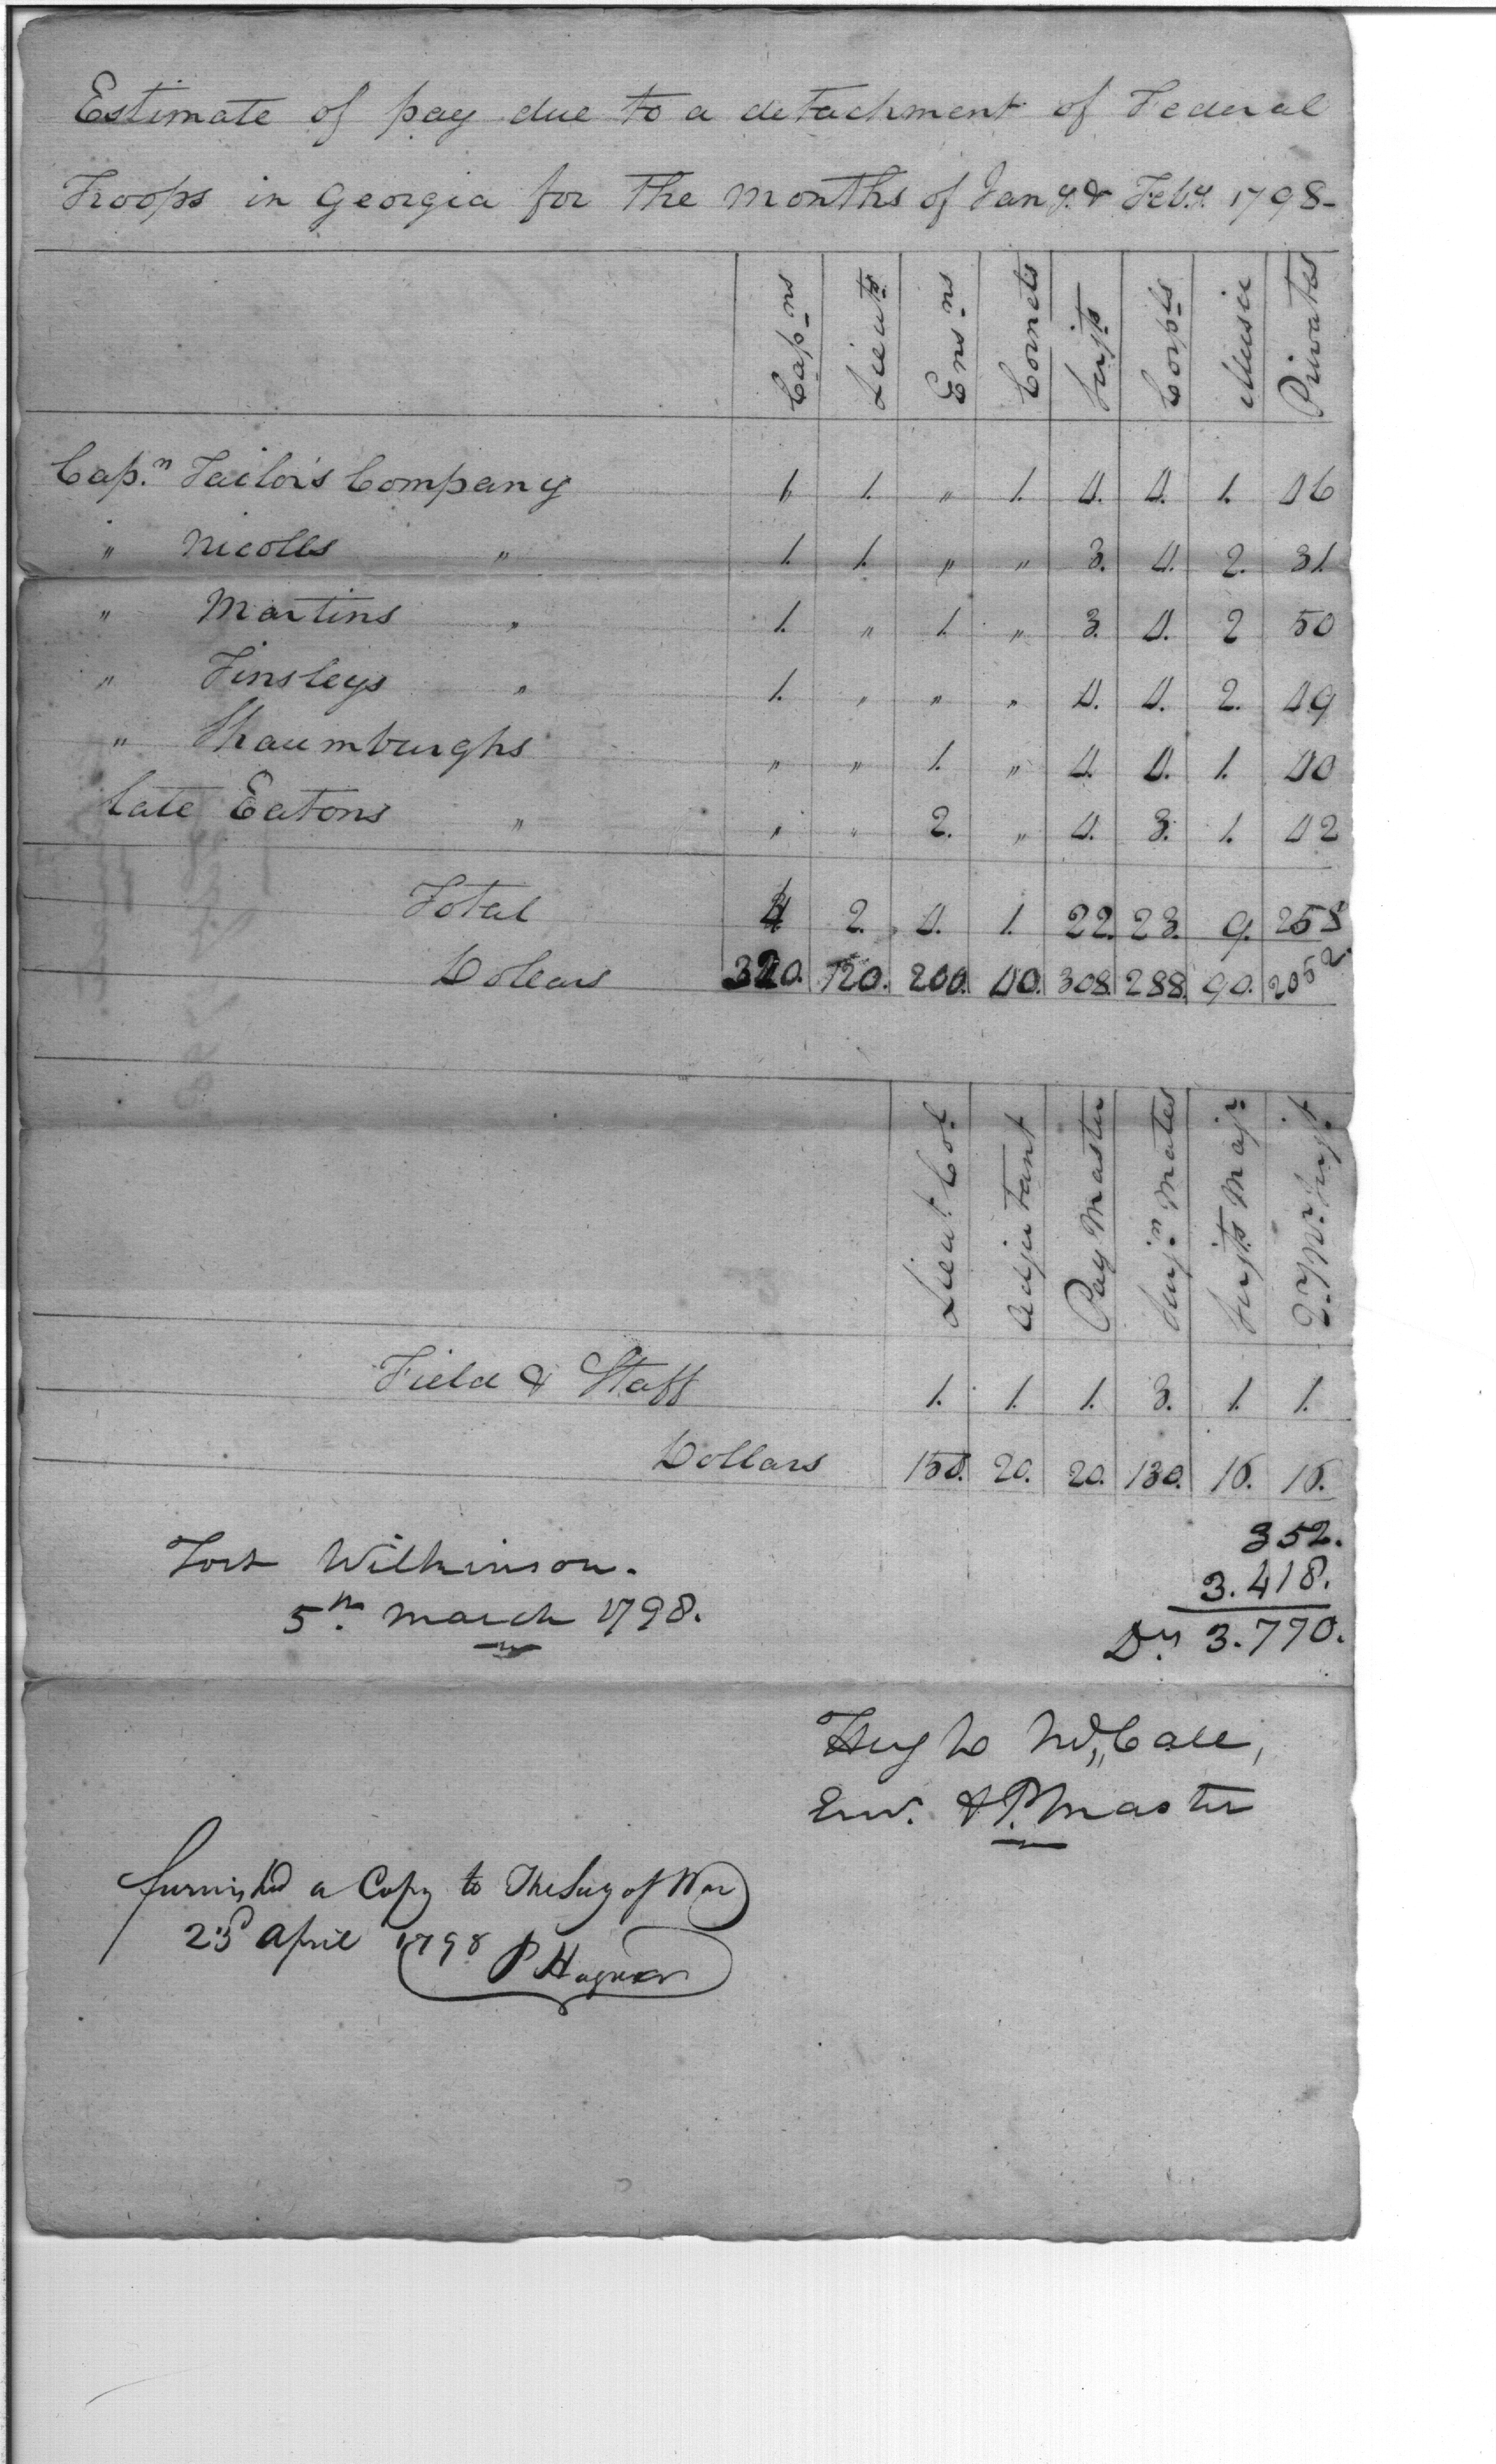 Estimate of pay due to a detachment of Federal
Troops in Georgia for the Months of Jany. & Feby. 1798-
Capns Lieuts Ensns Cornets Serjts Corpls Music Privates
Capn. Tailor's Company 1 1. " 1. 4. 4. 1. 46
" Nicolls " 1. 1. " " 3. 4. 2. 31.
" Martins " 1. " 1. " 3. 4. 2 50
" Tinsleys " 1. " " " 4. 4. 2. 49
" Shaumburghs " " 1. " 4. 4. 1. 40
Late Eatons " " " 2. " 4. 3. 1. 42
Total 4 2. 4. 1. 22. 23. 9. 258
Dollars 320. 120. 200. 40. 308. 288. 90. 2052.
Lieut. Col. Adjutant Pay Master Surjn. Mates Serjts. Majr. Q.Mr. Serjt
Field & Staff 1. 1. 1. 3. 1. 1.
Dollars 150. 20. 20. 130. 16. 16.
352.
Fort Wilkinson. 3.418.
5th. March 1798. Drs 3.770.
Hugh Mc,,Call,
Ens. & P. Master
furnished a Copy to The Secy of War
23d April 1798 P Hagner